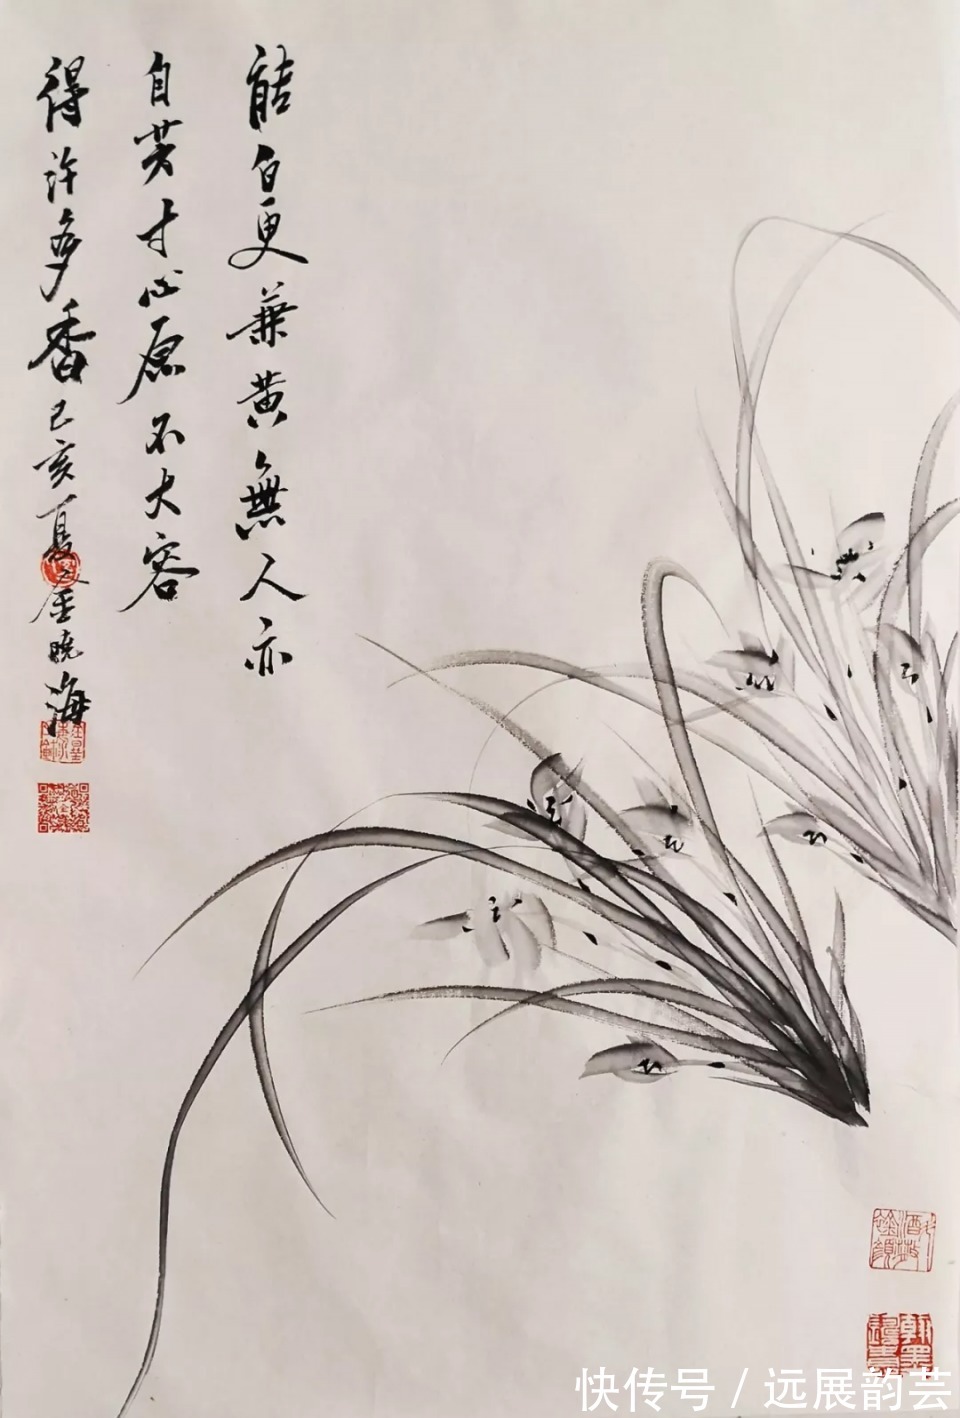 能白更兼黄無人亦
自芳寸心原不大容
得许多香己亥夏金晓海
快传号 / 远展韵芸